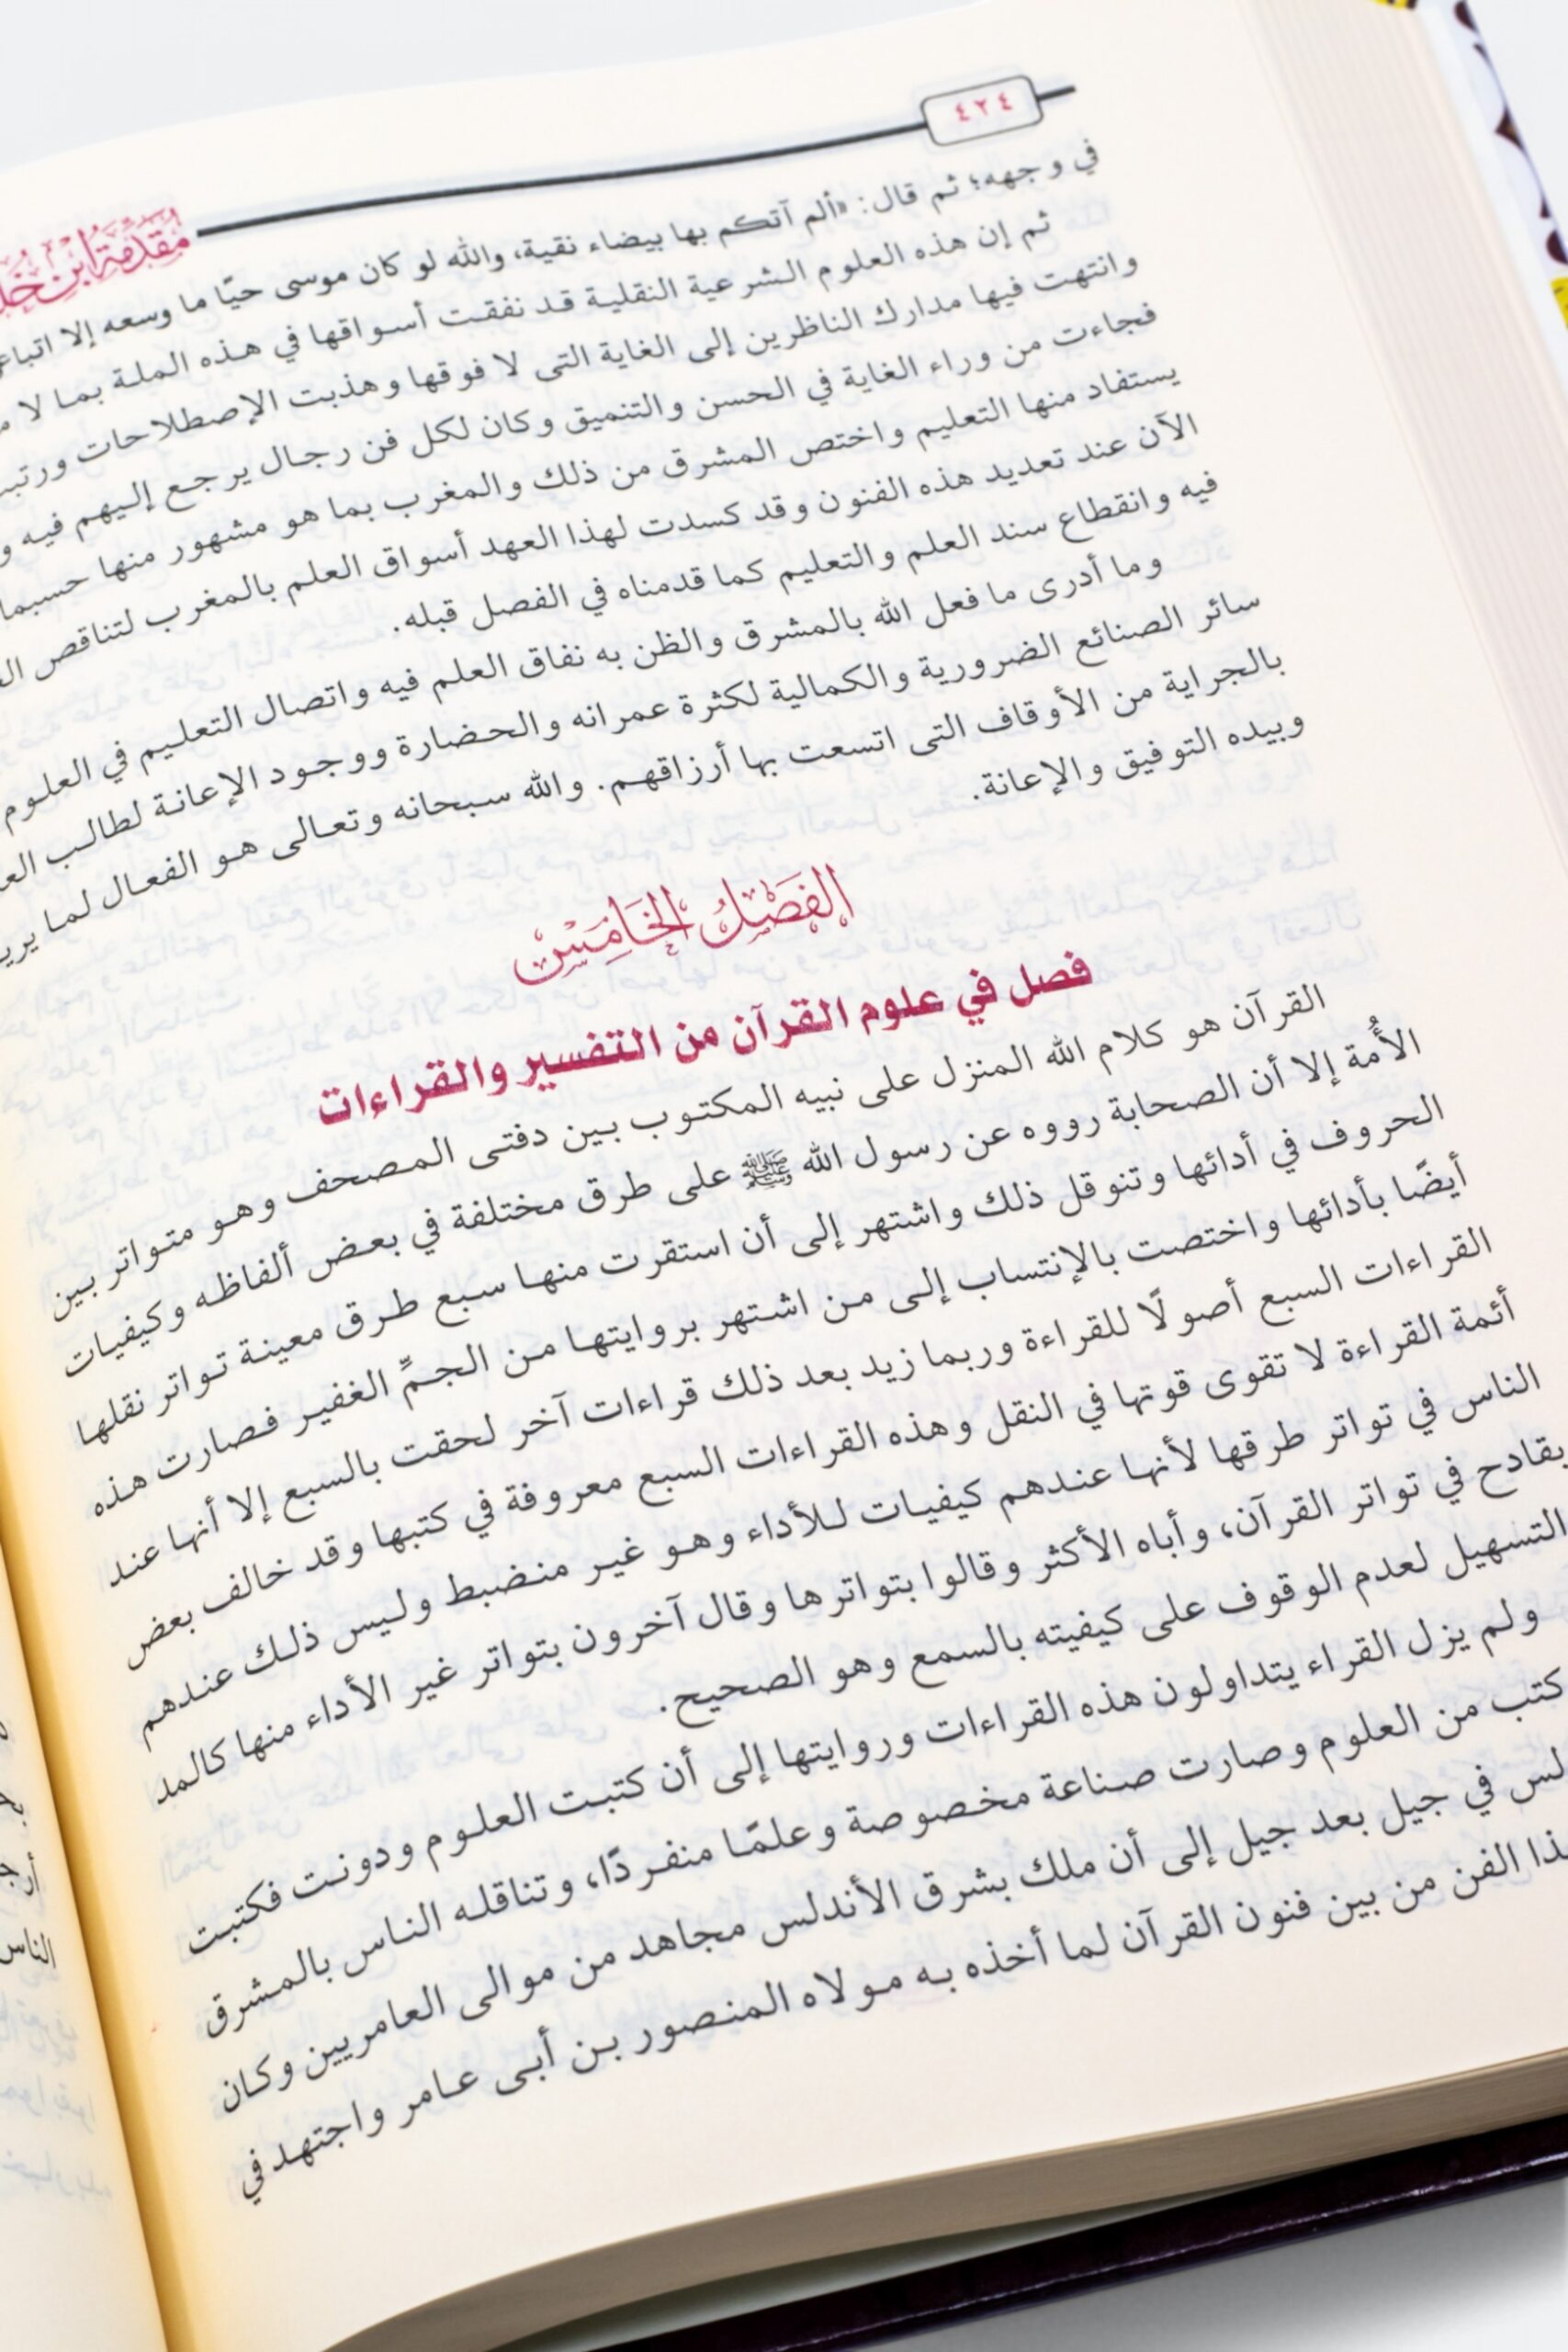 ٤٢٤
مقدمة ابن
في وجهه؛ ثم قال: «ألم آتكم بها بيضاء نقية، والله لو كان موسى حيًّا ما وسعه إلا
ثم إن هذه العلوم الشرعية النقلية قد نفقت أسواقها في هذه الملة بما لا
وانتهت فيها مدارك الناظرين إلى الغاية التى لا فوقها وهذبت الإصطلاحات
فجاءت من وراء الغاية في الحسن والتنميق وكان لكل فن رجال يرجع إليهم فيه
يستفاد منها التعليم واختص المشرق من ذلك والمغرب بما هو مشهور منها حسبما
الآن عند تعديد هذه الفنون وقد كسدت لهذا العهد أسواق العلم بالمغرب لتناقص
فيه وانقطاع سند العلم والتعليم كما قدمناه في الفصل قبله.
وما أدرى ما فعل الله بالمشرق والظن به نفاق العلم فيه واتصال التعليم في العلوم
سائر الصنائع الضرورية والكمالية لكثرة عمرانه والحضارة ووجود الإعانة لطالب
بالجراية من الأوقاف التى اتسعت بها أرزاقهم. والله سبحانه وتعالى هو الفعال لما
وبيده التوفيق والإعانة.
الفصل الخامس
فصل في علوم القرآن من التفسير والقراءات
القرآن هو كلام الله المنزل على نبيه المكتوب بين دفتى المصحف وهو متواتر بين
الأُمة إلا أن الصحابة رووه عن رسول الله ﷺ على طرق مختلفة في بعض ألفاظه وكيفيات
الحروف في أدائها وتنوقل ذلك واشتهر إلى أن استقرت منها سبع طرق معينة تواتر نقلها
أيضًا بأدائها واختصت بالإنتساب إلى من اشتهر بروايتها من الجمِّ الغفير فصارت هذه
القراءات السبع أصولًا للقراءة وربما زيد بعد ذلك قراءات آخر لحقت بالسبع إلا أنها عند
أئمة القراءة لا تقوى قوتها في النقل وهذه القراءات السبع معروفة في كتبها وقد خالف بعض
الناس في تواتر طرقها لأنها عندهم كيفيات للأداء وهو غير منضبط وليس ذلك عندهم
بقادح في تواتر القرآن، وأباه الأكثر وقالوا بتواترها وقال آخرون بتواتر غير الأداء منها كالمد
التسهيل لعدم الوقوف على كيفيته بالسمع وهو الصحيح.
ولم يزل القراء يتداولون هذه القراءات وروايتها إلى أن كتبت العلوم ودونت فكتبت
كتب من العلوم وصارت صناعة مخصوصة وعلمًا منفردًا، وتناقله الناس بالمشرق
لس في جيل بعد جيل إلى أن ملك بشرق الأندلس مجاهد من موالى العامريين وكان
ذا الفن من بين فنون القرآن لما أخذه به مولاه المنصور بن أبى عامر واجتهد في
الناس